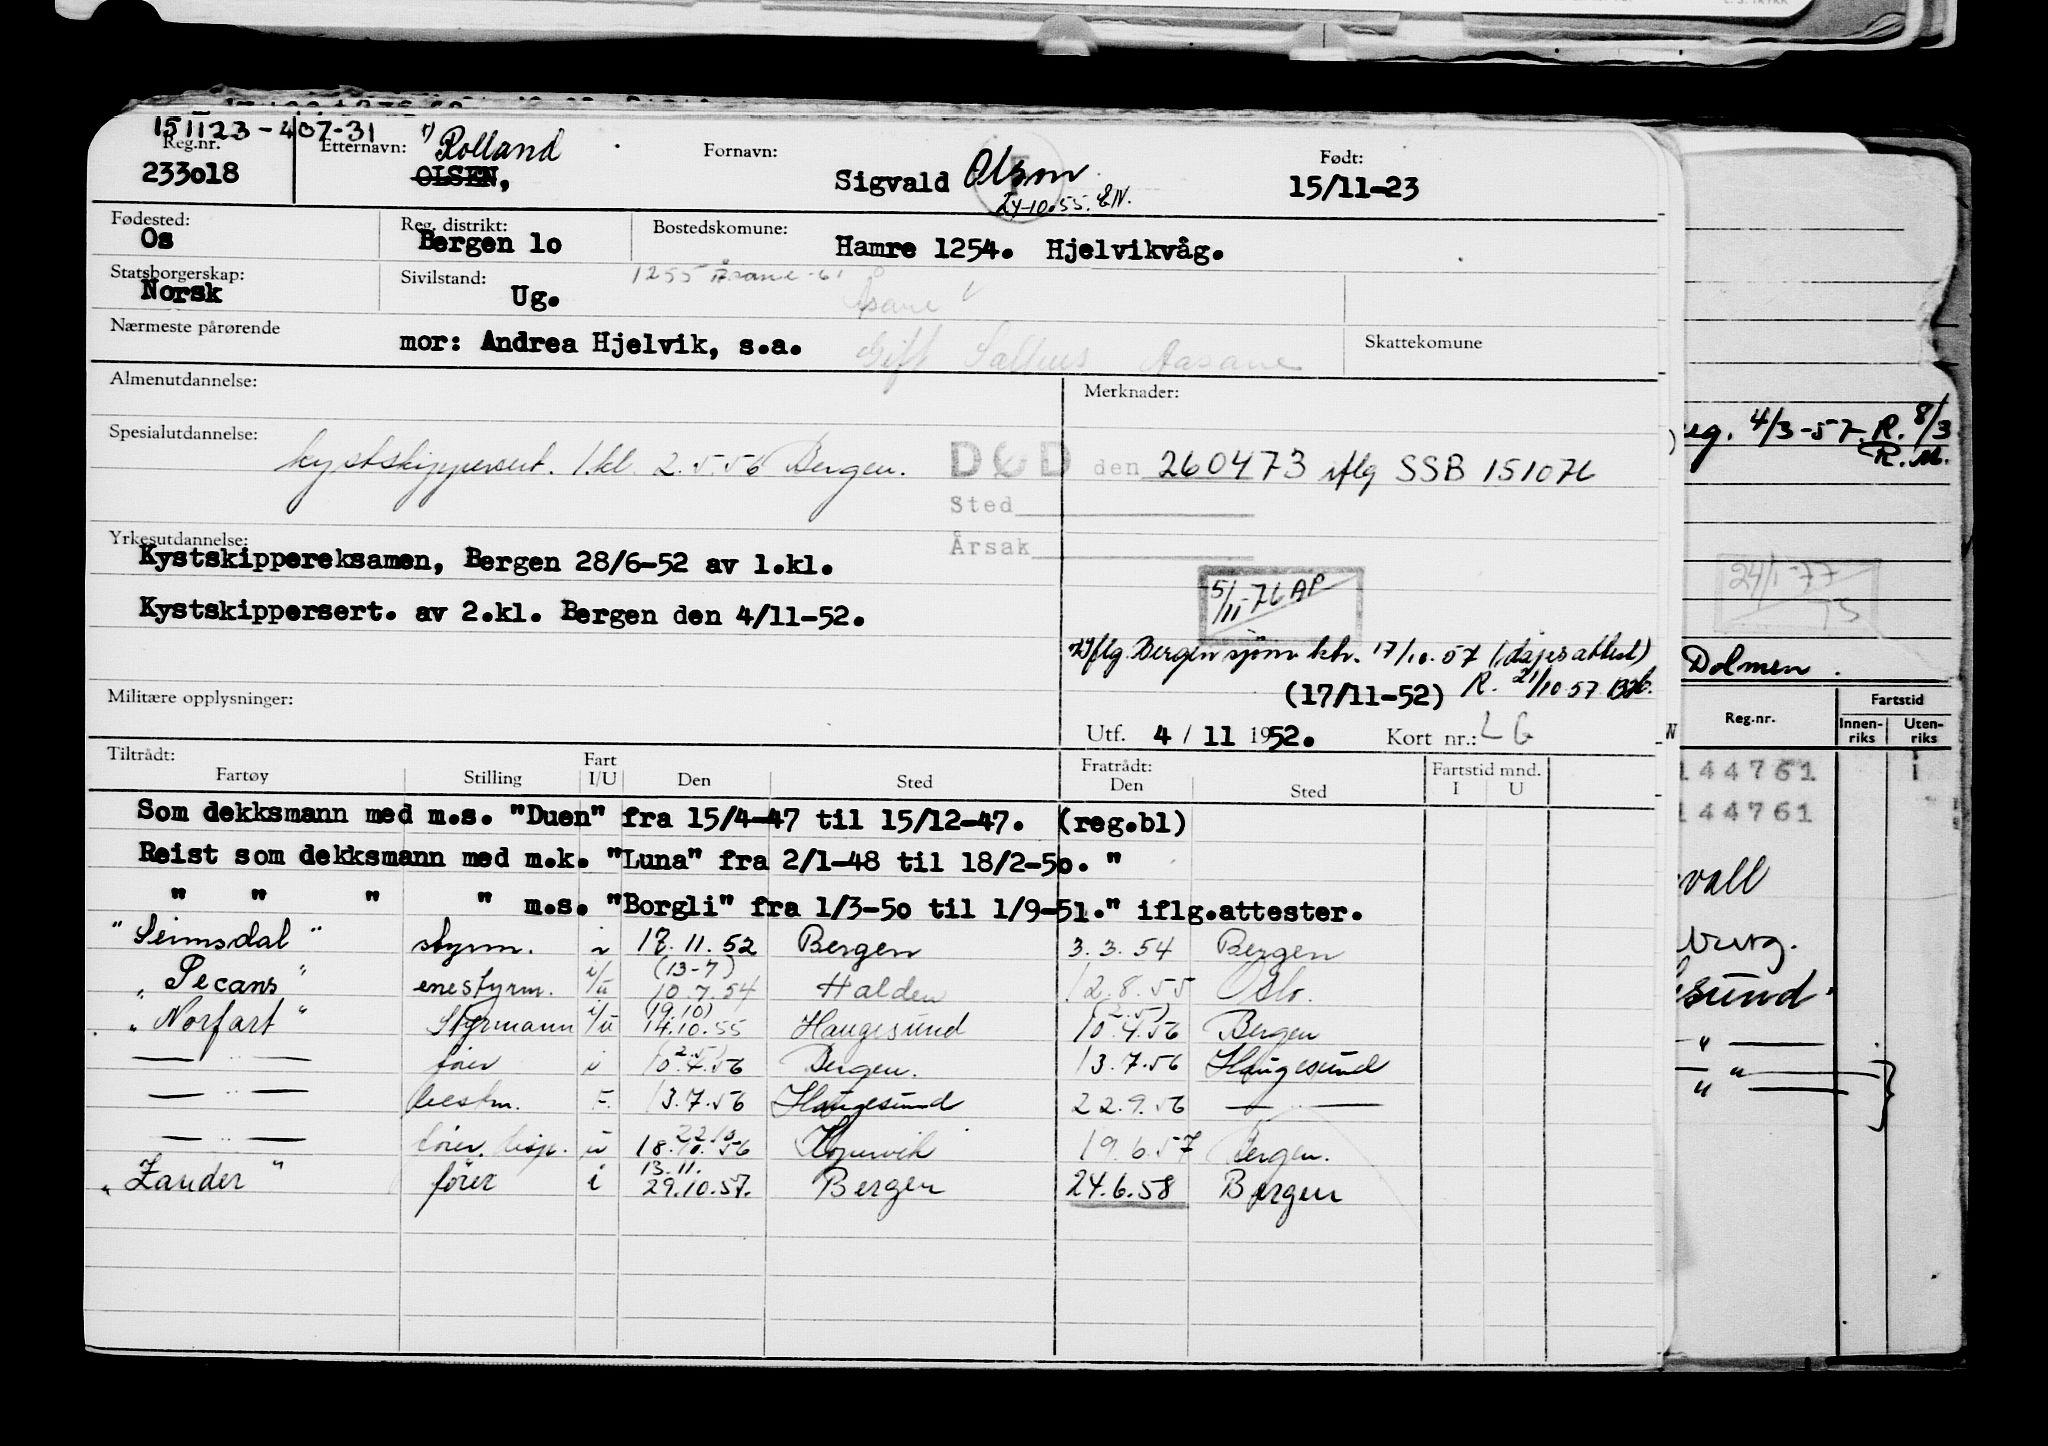 151123-407-31
Reg.nr.
233018
Etternavn: 1) Rolland
OLSEN,
Fornavn:
Sigvald Olson
24-10.55. EN.
Født:
15/11-23
Fødested:
Os
Reg. distrikt:
Bergen 10
Bostedskomune:
Hamre 1254. Hjelvikvåg.
Statsborgerskap:
Norsk
Sivilstand:
Ug.
1255 Åsane -61
Åsane
Nærmeste pårørende
mor: Andrea Hjelvik, s.a.
Gift Salhus Aasane
Skattekomune
Almenutdannelse:
Merknader:
Spesialutdannelse:
kystskippersert. 1.kl. 2.5.56 Bergen.
DØD den 260473 iflg SSB 151076
Sted
Årsak
Yrkesutdannelse:
Kystskippereksamen, Bergen 28/6-52 av 1.kl.
Kystskippersert. av 2.kl. Bergen den 4/11-52.
5/11-76 AP
1) Iflg. Bergen sjøm. ktr. 17/10.57 (dåpsattest)
(17/11-52) R. 21/10 57.
Militære opplysninger:
Utf. 4 / 11 1952. Kort nr.: LG
Tiltrådt:
Fartøy Stilling Fart I/U Den Sted
Fratrådt:
Den Sted
Fartstid mnd.
I U
Som dekksmann med m.s. "Duen" fra 15/4-47 til 15/12-47. (reg.bl)
Reist som dekksmann med m.k. "Luna" fra 2/1-48 til 18/2-50. "
" " " " m.s. "Borgli" fra 1/3-50 til 1/9-51." iflg.attester.
"Seimsdal" styrm. i 17.11.52 Bergen 3.3.54 Bergen
(13-7)
"Pecans" enestyrm. i/u 10.7.54 Halden 12.8.55 Oslo.
(19.10) (2.5)
"Norfart" Styrmann i/u 14.10.55 Haugesund 10.4.56 Bergen
(2.5)
— " — fører i 10.4.56 Bergen. 13.7.56 Haugesund
— " — bestm. F. 13.7.56 Haugesund 22.9.56 — " —
22.10
— " — fører, disp. u 18.10.56 Kopervik 19.6.57 Bergen.
13.11.
"Zander" fører i 29.10.57. Bergen 24.6.58 Bergen
eg. 4/3-57 R. 8/3
R. M.
24/1-77
Dolmen.
Reg.nr.
Fartstid
Innen-riks
Uten-riks
144761 i
144761
vall
burg.
sund"
— " —
— " —
— " —